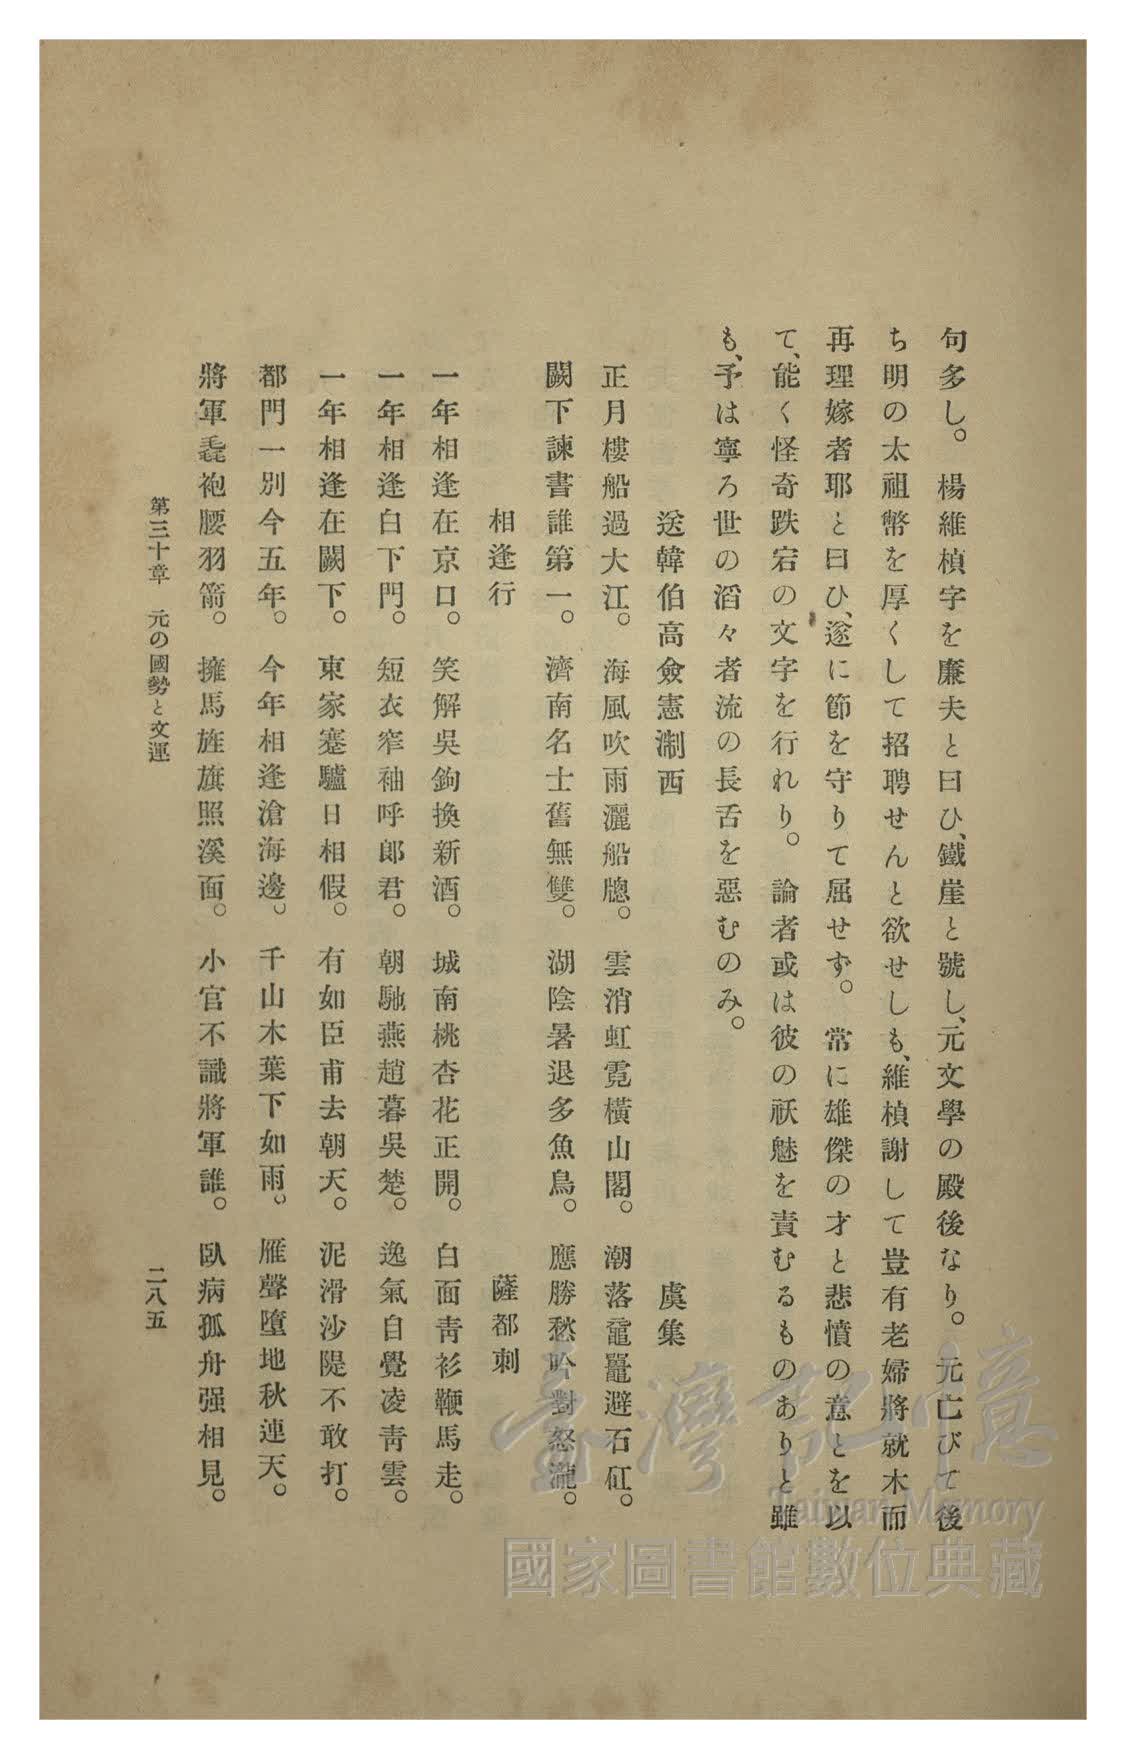 句多し。楊維楨字を廉夫と曰ひ、鐵崖と號し、元文學の殿後なり。元亡びて後
ち明の太祖幣を厚くして招聘せんと欲せしも、維楨謝して豈有老婦將就木而
再理嫁者耶と曰ひ、遂に節を守りて屈せず。常に雄傑の才と悲憤の意とを以
て、能く怪奇跌宕の文字を行れり。論者或は彼の祅魅を責むるものありと雖
も、予は寧ろ世の滔々者流の長舌を惡むのみ。
送韓伯高僉憲淛西 虞集
正月樓船過大江。海風吹雨灑船牕。雲消虹霓橫山閣。潮落黿鼉避石矼。
闕下諫書誰第一。濟南名士舊無雙。湖陰暑退多魚鳥。應勝愁吟對怒瀧。
相逢行 薩都刺
一年相逢在京口。笑解吳鉤換新酒。城南桃杏花正開。白面靑衫鞭馬走。
一年相逢白下門。短衣窄袖呼郞君。朝馳燕趙暮吳楚。逸氣自覺凌靑雲。
一年相逢在闕下。東家蹇驢日相假。有如臣甫去朝天。泥滑沙隄不敢打。
都門一別今五年。今年相逢滄海邊。千山木葉下如雨。雁聲墮地秋連天。
將軍毳袍腰羽箭。擁馬旌旗照溪面。小官不識將軍誰。臥病孤舟强相見。
第三十章 元の國勢と文運 二八五
臺灣記憶
Taiwan Memory
國家圖書館數位典藏